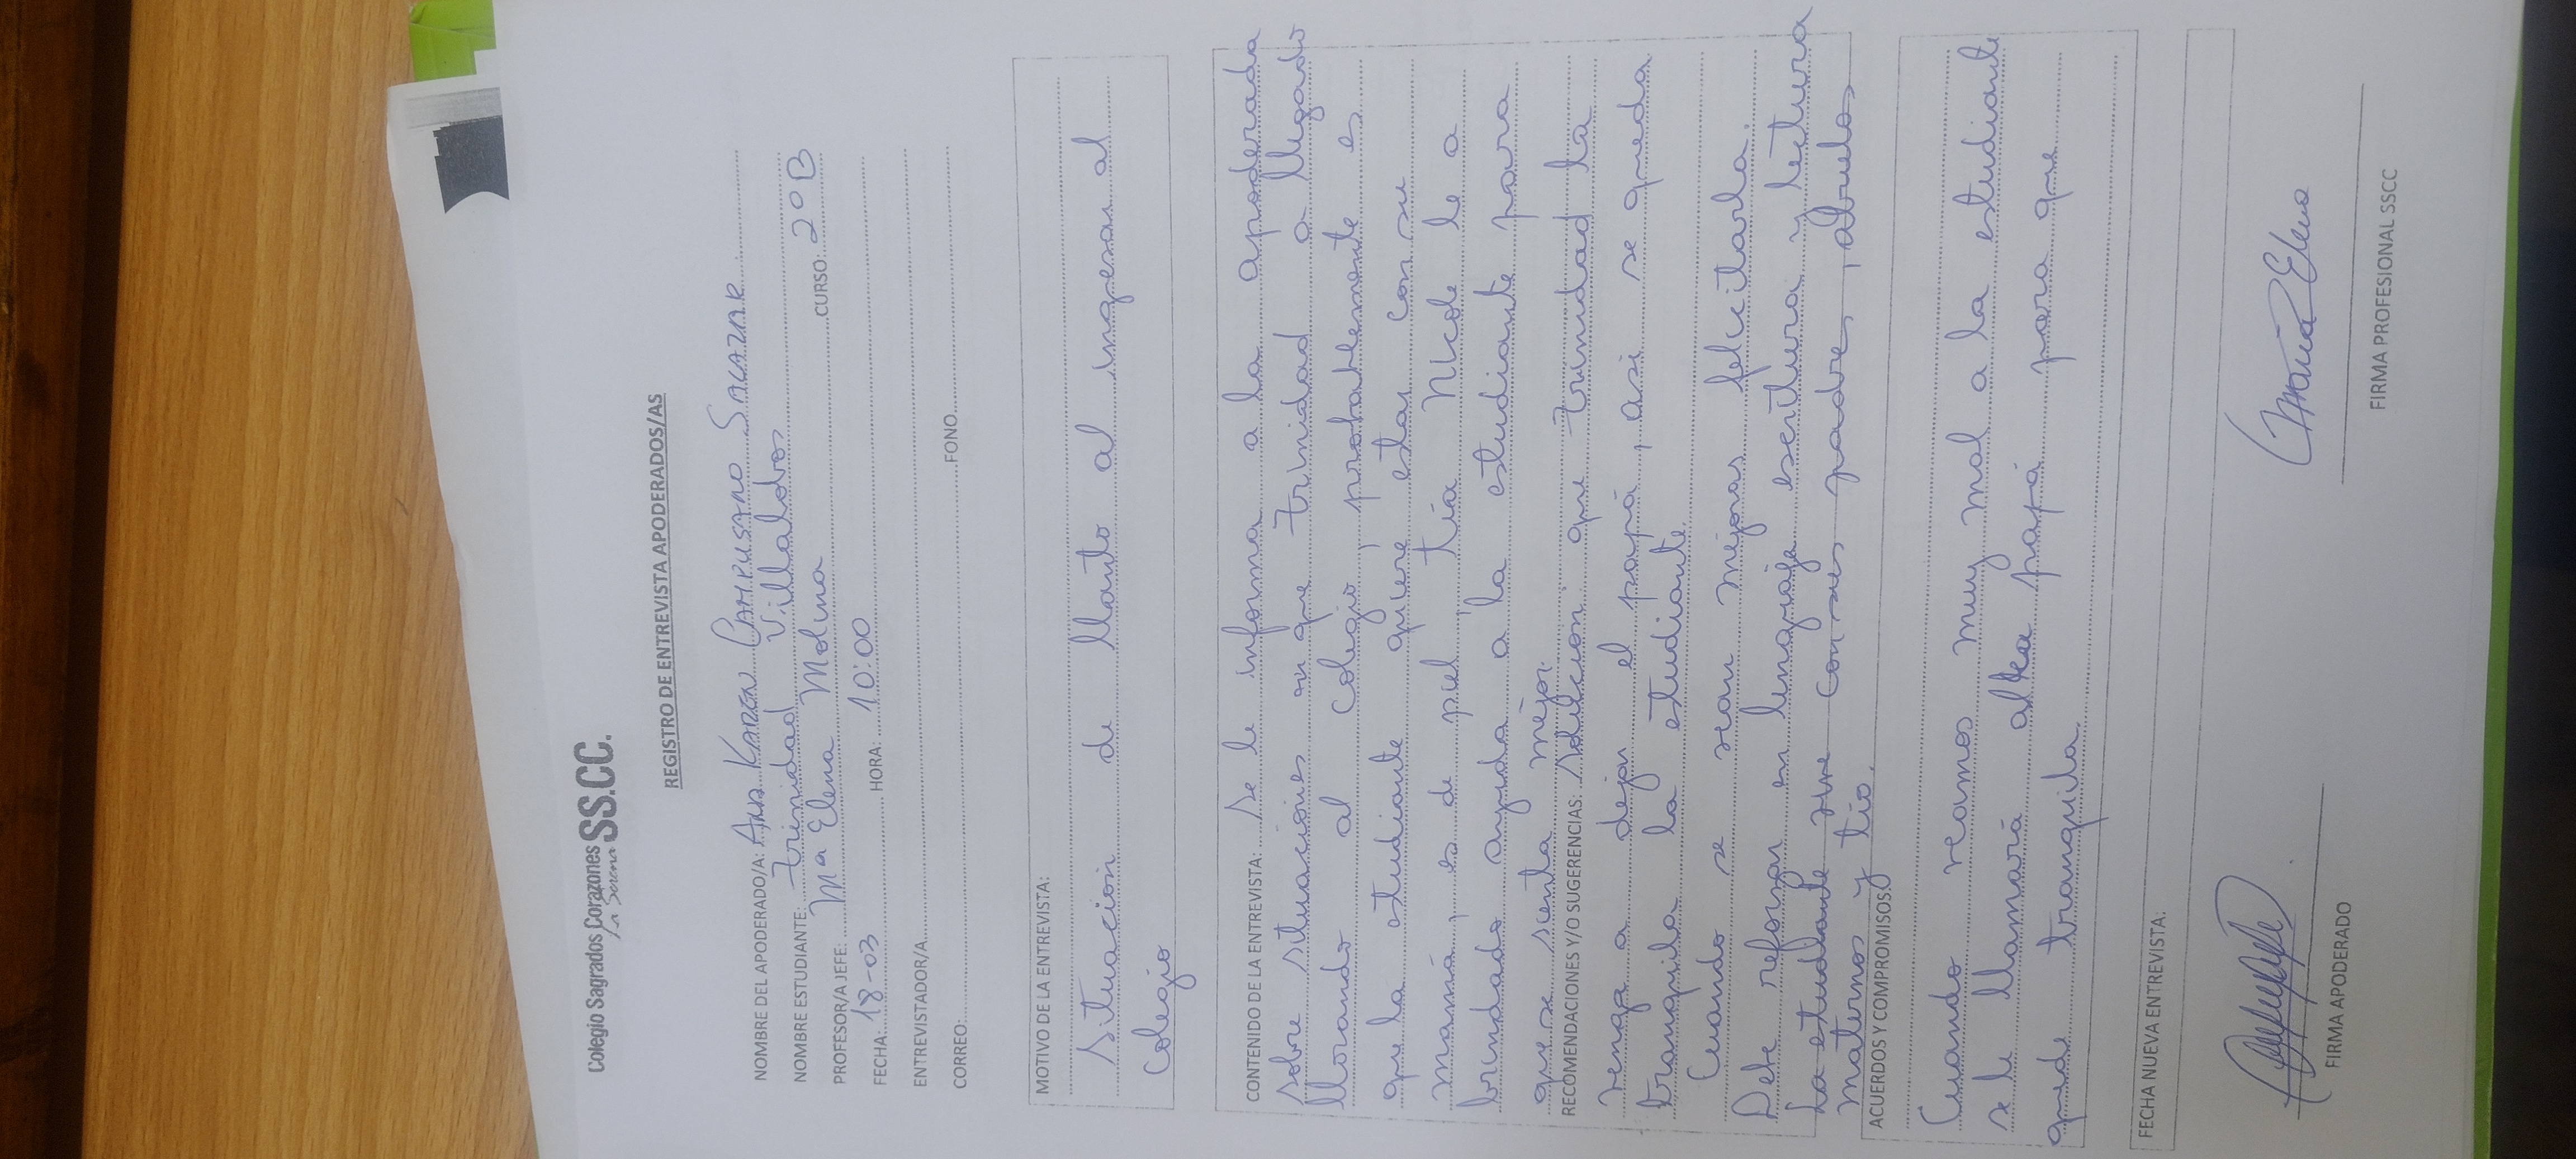 Colegio Sagrados Corazones SS.CC.
La Serena
REGISTRO DE ENTREVISTA APODERADOS/AS
NOMBRE DEL APODERADO/A: Ana Karen Campusano Salazar
NOMBRE ESTUDIANTE: Trinidad Villalobos CURSO: 2°B
PROFESOR/A JEFE: Mª Elena Molina
FECHA: 18-03 HORA: 10:00
ENTREVISTADOR/A
CORREO: FONO
MOTIVO DE LA ENTREVISTA:
Situación de llanto al ingresar al
Colegio
CONTENIDO DE LA ENTREVISTA: Se le informa a la apoderada
sobre situaciones en que Trinidad a llegado
llorando al colegio, probablemente es
que la estudiante quiere estar con su
mamá, es de piel tía Nicole le a
brindado ayuda a la estudiante para
que se sienta mejor.
RECOMENDACIONES Y/O SUGERENCIAS: Solución que Trinidad la
venga a dejar el papá, asi se queda
tranquila la estudiante
Cuando se vean mejoras felicitarla.
Debe reforzar en lenguaje escritura y lectura
La estudiante vive con sus padres, abuelos
maternos y tío.
ACUERDOS Y COMPROMISOS:
Cuando veamos muy mal a la estudiante
se le llamará al papá para que
quede tranquila
FECHA NUEVA ENTREVISTA:
FIRMA APODERADO
María Elena
FIRMA PROFESIONAL SSCC